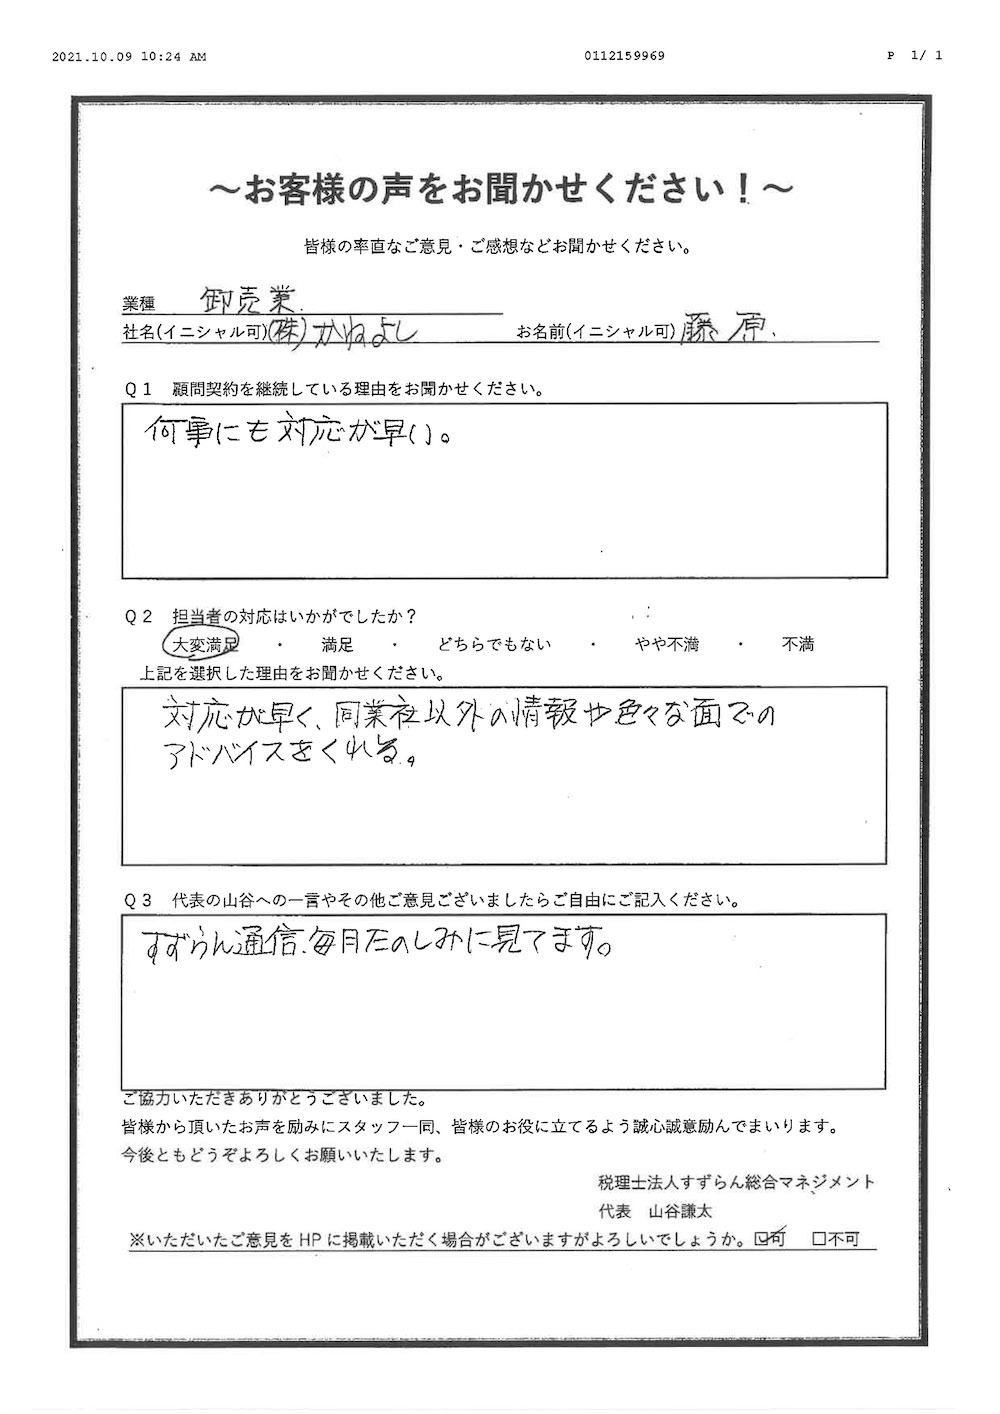 2021.10.09 10:24 AM 0112159969 P 1/ 1
～お客様の声をお聞かせください！～
皆様の率直なご意見・ご感想などお聞かせください。
業種 卸売業.
社名(イニシャル可)(株)かねよし お名前(イニシャル可)藤原.
Ｑ１ 顧問契約を継続している理由をお聞かせください。
何事にも対応が早い。
Ｑ２ 担当者の対応はいかがでしたか？
大変満足 ・ 満足 ・ どちらでもない ・ やや不満 ・ 不満
上記を選択した理由をお聞かせください。
対応が早く、同業社以外の情報や色々な面での
アドバイスをくれる。
Ｑ３ 代表の山谷への一言やその他ご意見ございましたらご自由にご記入ください。
すずらん通信.毎月たのしみに見てます。
ご協力いただきありがとうございました。
皆様から頂いたお声を励みにスタッフ一同、皆様のお役に立てるよう誠心誠意励んでまいります。
今後ともどうぞよろしくお願いいたします。
税理士法人すずらん総合マネジメント
代表 山谷謙太
※いただいたご意見をHPに掲載いただく場合がございますがよろしいでしょうか。☑可 □不可